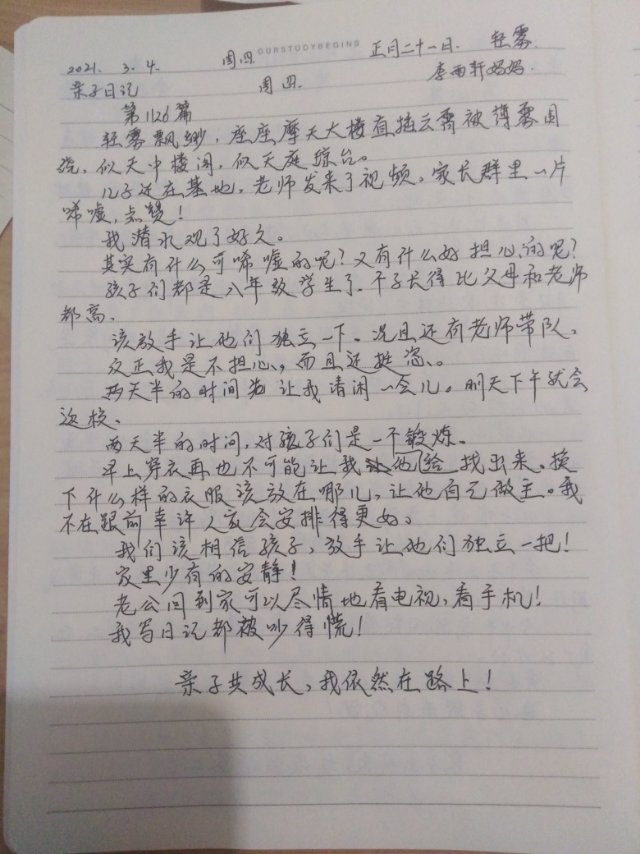 OURSTUDYBEGINS
2021. 3. 4. 周四 正月二十一日. 轻雾.
亲子日记 周四 李雨轩妈妈.
第1126篇
轻雾飘渺，座座摩天大楼直插云霄被薄雾围
绕，似天中楼阁，似天庭综台。
儿子还在基地，老师发来了视频，家长群里一片
唏嘘，点赞！
我潜水观了好久。
其实有什么可唏嘘的呢？又有什么好担心的呢？
孩子们都是八年级学生了，个子长得比父母和老师
都高.
该放手让他们独立一下，况且还有老师带队，
反正我是不担心，而且还挺恣。
两天半的时间 让我清闲一会儿。明天下午就会
返校、
两天半的时间，对孩子们是一个锻炼。
早上穿衣再也不可能让我 给他找出来，换
下什么样的衣服该放在哪儿，让他自己做主。我
不在跟前幸许人家会安排得更好。
我们该相信孩子，放手让他们独立一把！
家里少有的安静！
老公回到家可以尽情地看电视，看手机！
我写日记都被吵得慌！
亲子共成长，我依然在路上！